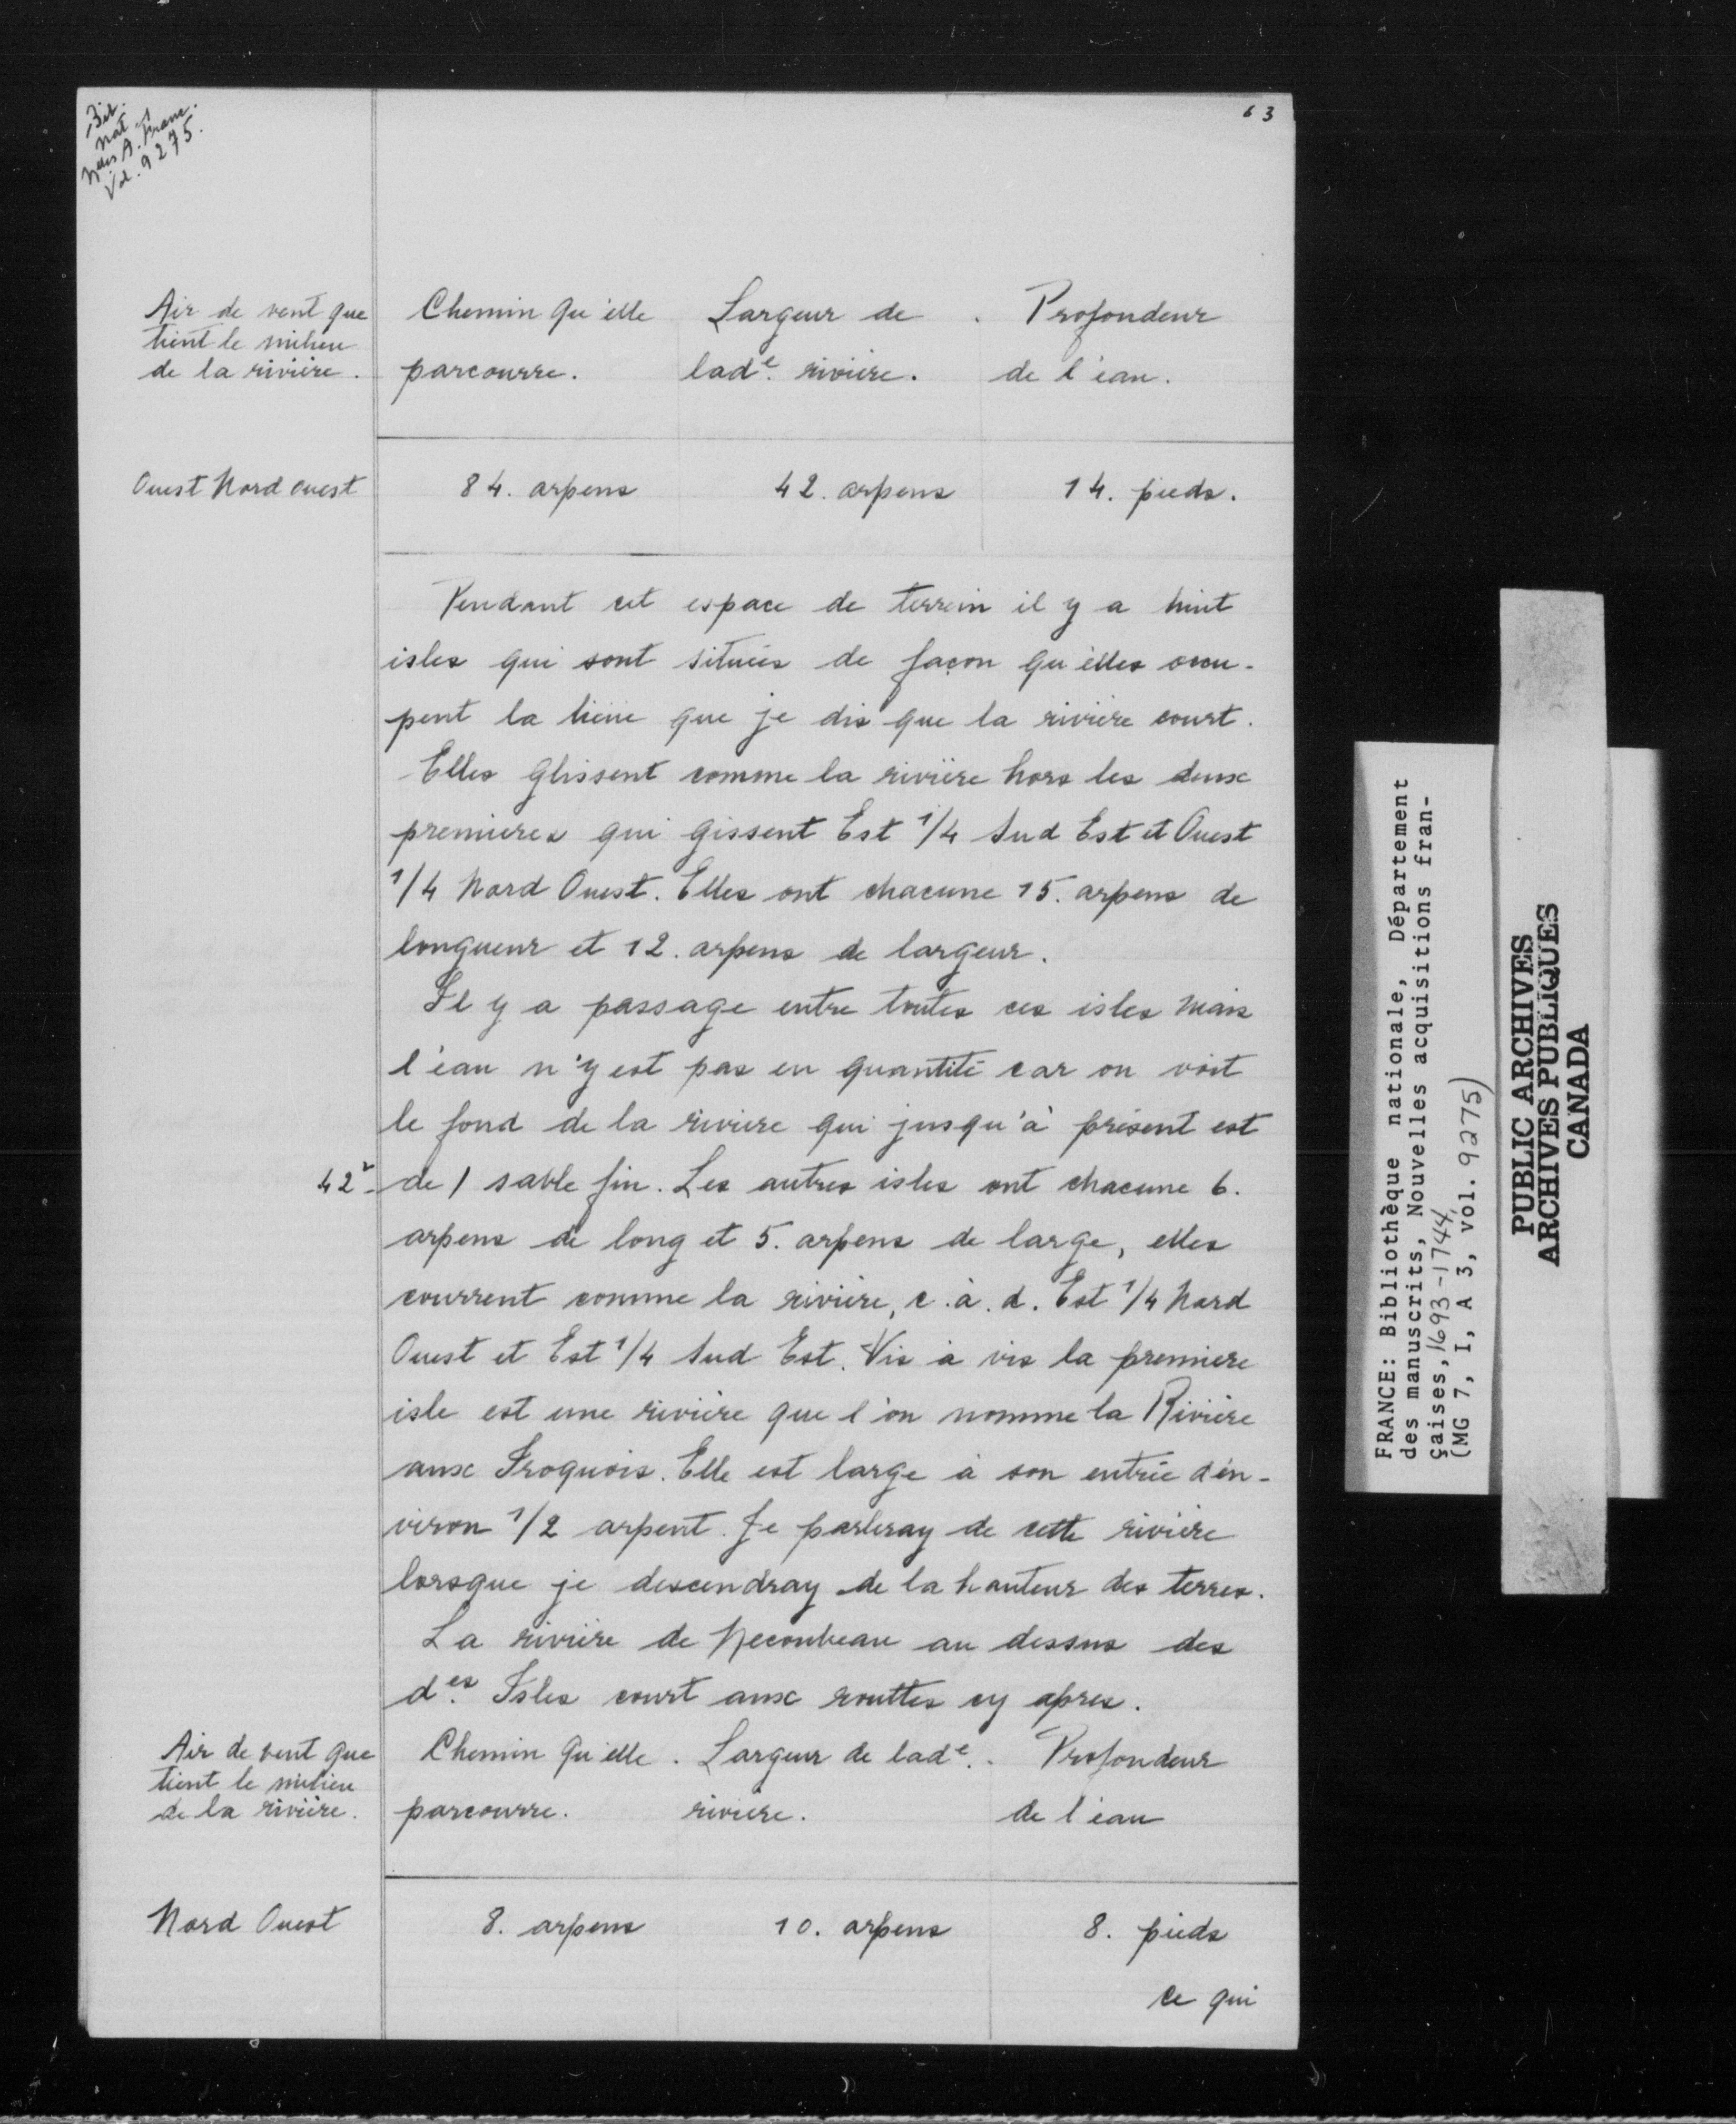 Bib.
Nat
Nlles A. Franc.
Vol. 9275.
63
Air de vent que
tient le milieu
de la rivière.
Chemin qu'elle
parcourre.
Largeur de
lade. rivière.
Profondeur
de l'eau.
Ouest Nord ouest 84. arpens 42. arpens 14. pieds.
Pendant cet espace de terrein il y a huit
isles qui sont situées de façon qu'elles occu-
pent la lieue que je dis que la rivière court.
Elles glissent comme la rivière hors les deux
premieres qui gissent Est 1/4 Sud Est et Ouest
1/4 Nord Ouest. Elles ont chacune 15. arpens de
longueur et 12. arpens de largeur.
Il y a passage entre toutes ces isles mais
l'eau n'y est pas en quantité car on voit
le fond de la riviere qui jusqu'à présent est
42v- de / sable fin. Les autres isles ont chacune 6.
arpens de long et 5. arpens de large, elles
courrent comme la rivière, c. à. d. Est 1/4 Nord
Ouest et Est 1/4 Sud Est. Vis à vis la premiere
isle est une rivière que l'on nomme la Rivière
aux Iroquois. Elle est large à son entrée d'en-
viron 1/2 arpent. Je parleray de cette rivière
lorsque je descendray de la hauteur des terres.
La rivière de Necoubeau au dessus des
des. Isles court aux routtes cy apres.
Air de vent que
tient le milieu
de la rivière.
Chemin qu'elle
parcourre.
Largeur de lade.
rivière.
Profondeur
de l'eau
Nord Ouest 8. arpens 10. arpens 8. pieds
ce qui
FRANCE: Bibliothèque nationale, Département
des manuscrits, Nouvelles acquisitions fran-
çaises, 1693-1744,
(MG 7, I, A 3, vol. 9275)
PUBLIC ARCHIVES
ARCHIVES PUBLIQUES
CANADA